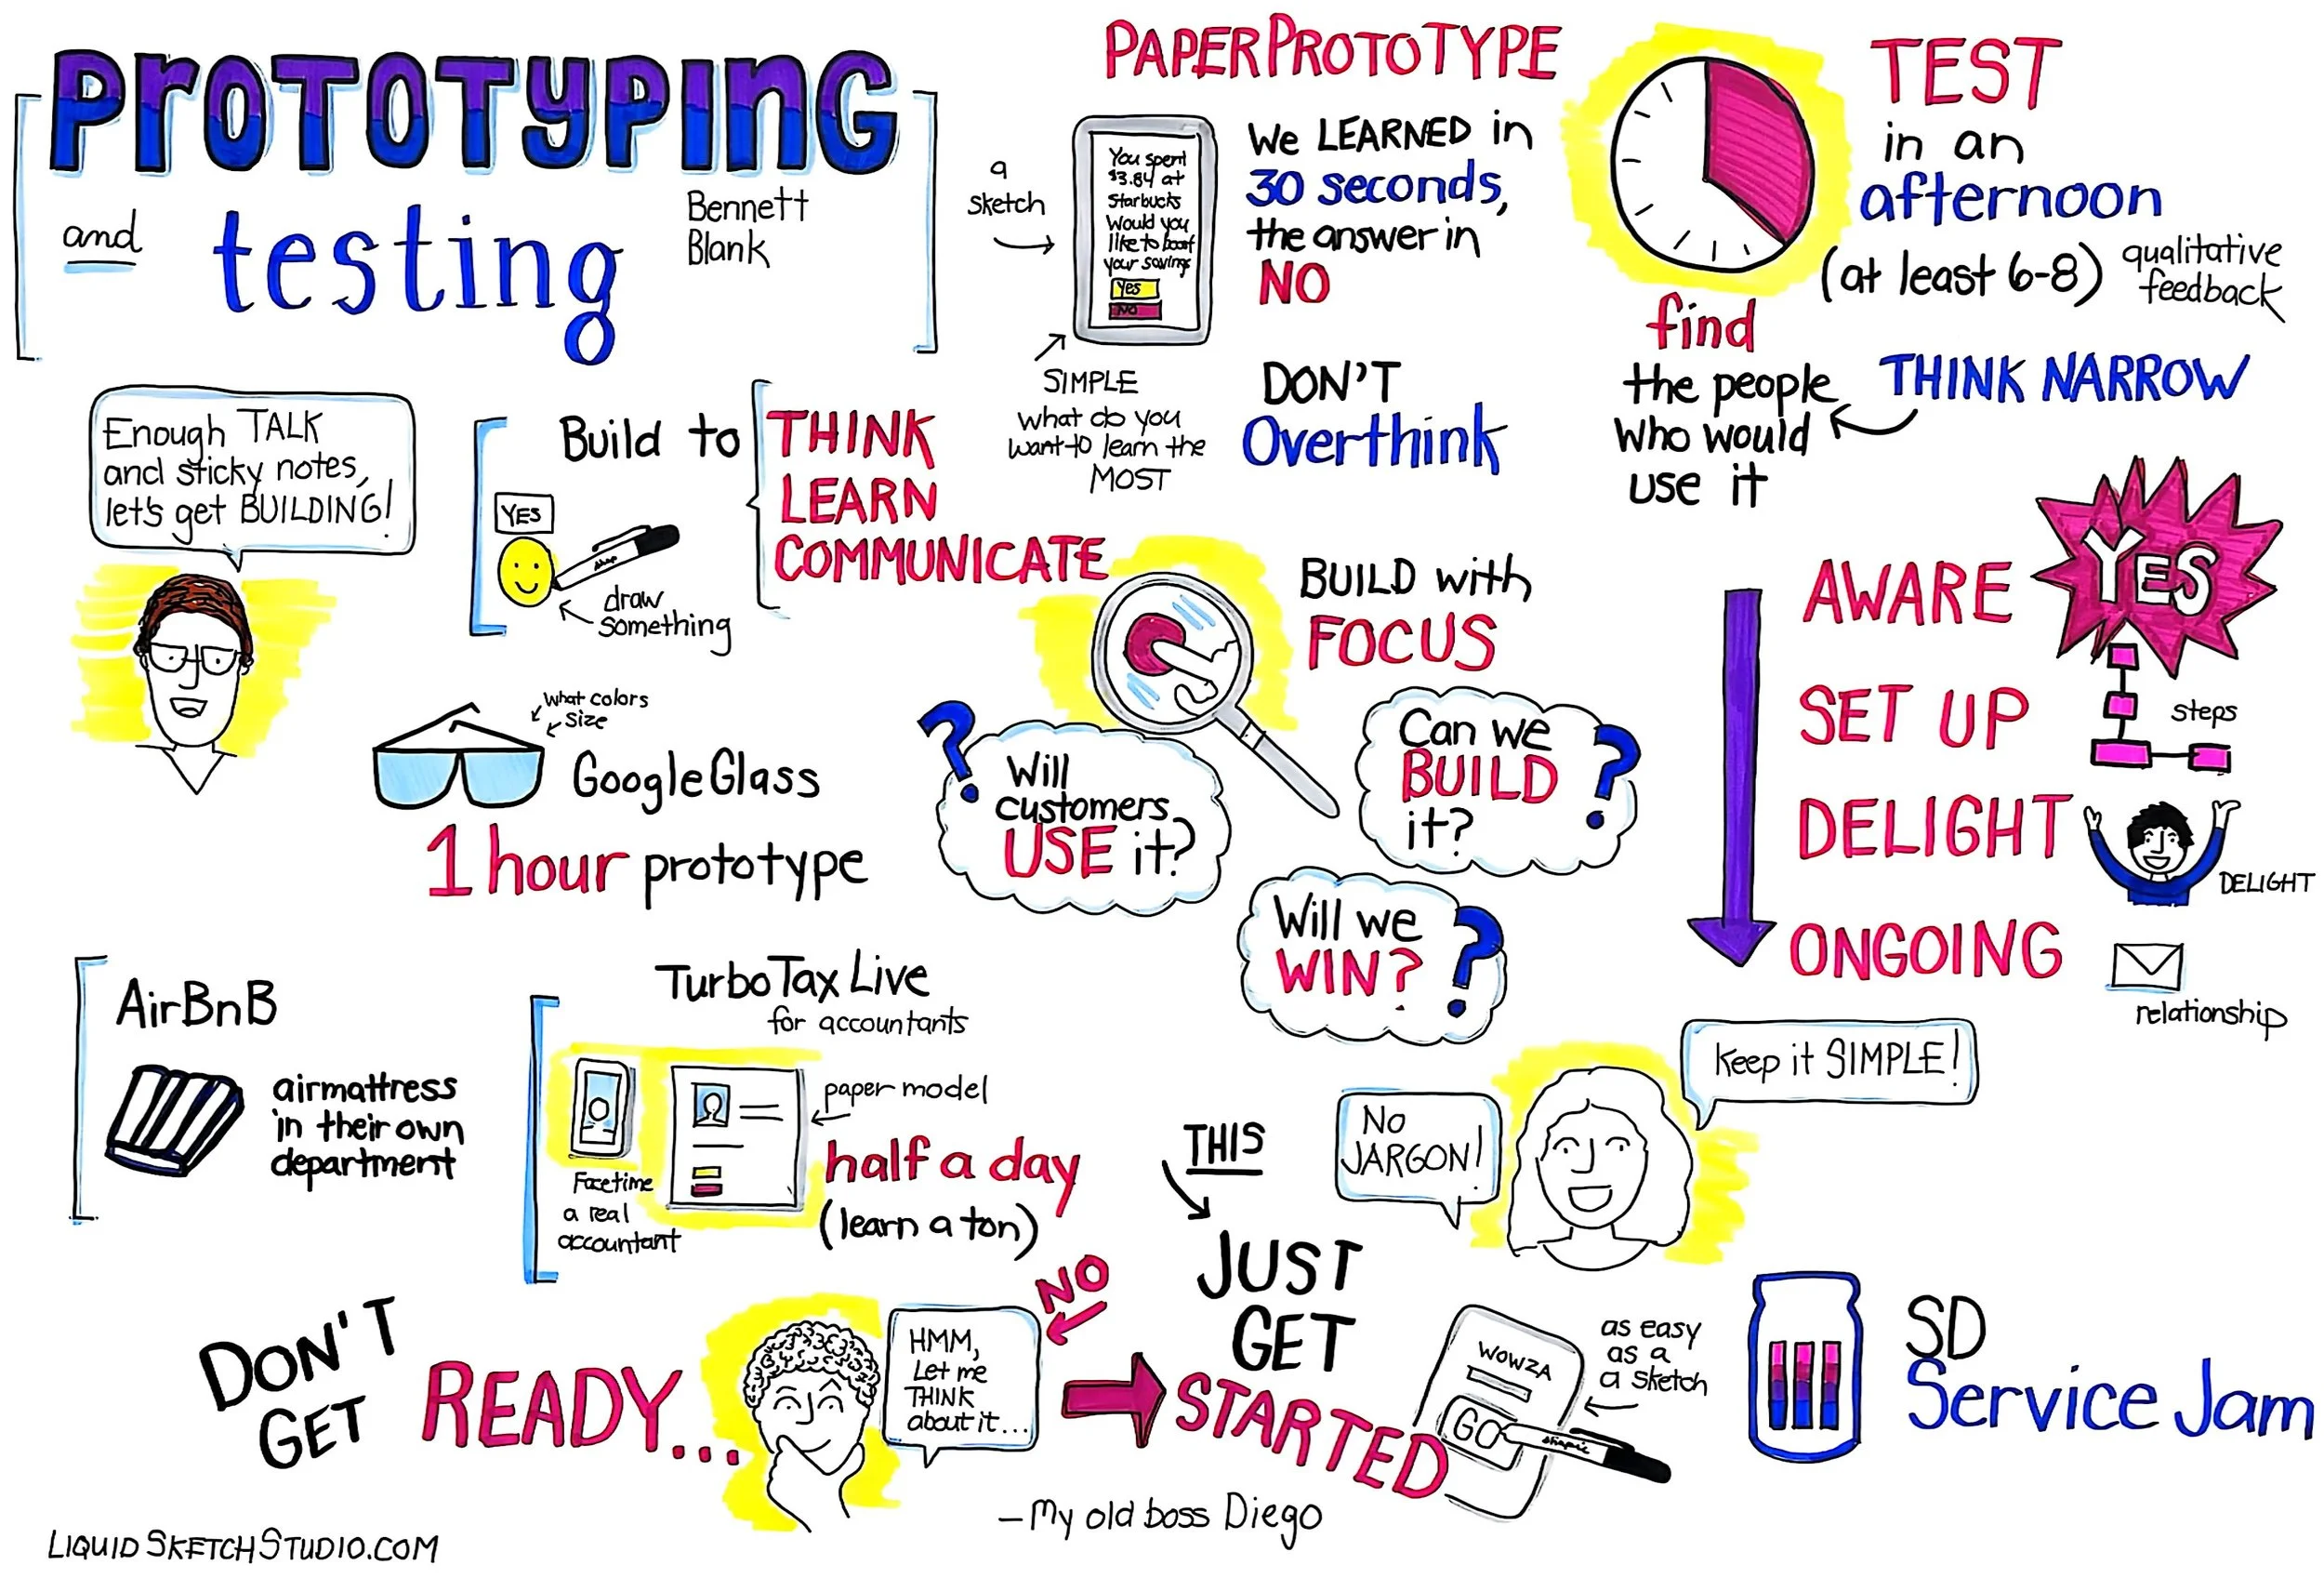 PROTOTYPING
and
testing
Bennett
Blank
PAPER PROTOTYPE
a
sketch
You spent
$3.84 at
Starbucks
Would you
like to boost
your savings
Yes
NO
We LEARNED in
30 seconds,
the answer in
NO
SIMPLE
what do you
want to learn the
MOST
DON'T
Overthink
TEST
in an
afternoon
(at least 6-8)
qualitative
feedback
find
the people
who would
use it
THINK NARROW
Enough TALK
and sticky notes,
let's get BUILDING!
Build to
THINK
LEARN
COMMUNICATE
YES
draw
something
BUILD with
FOCUS
Will
customers
USE it?
?
Can we
BUILD
it?
?
Will we
WIN?
?
AWARE
YES
SET UP
steps
DELIGHT
DELIGHT
ONGOING
relationship
what colors
size
Google Glass
1 hour prototype
AirBnB
airmattress
in their own
department
TurboTax Live
for accountants
paper model
Facetime
a real
accountant
half a day
(learn a ton)
THIS
NO
JARGON!
Keep it SIMPLE!
DON'T
GET
READY...
HMM,
Let me
THINK
about it...
NO
JUST
GET
STARTED
WOWZA
GO
as easy
as a
a sketch
– My old boss Diego
SD
Service Jam
LIQUIDSKETCHSTUDIO.COM